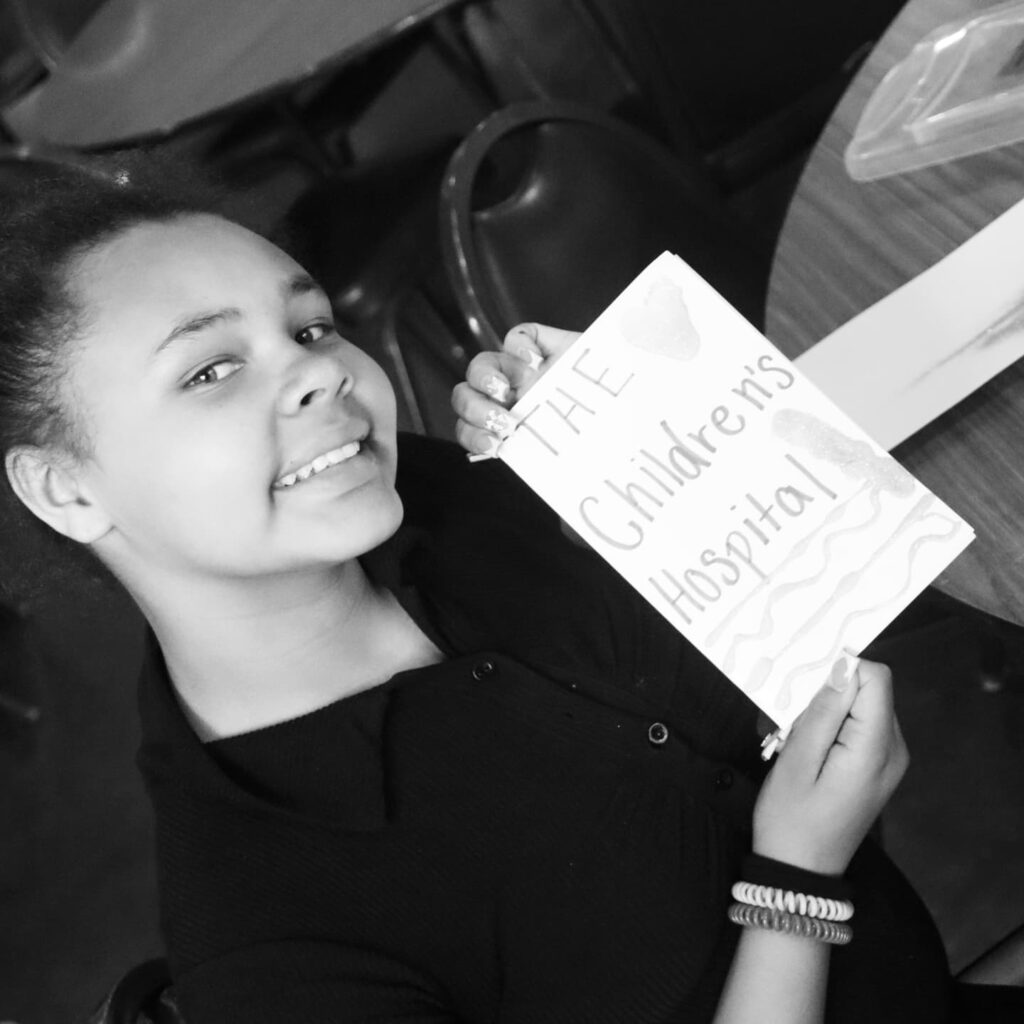 THE
Children's
Hospital